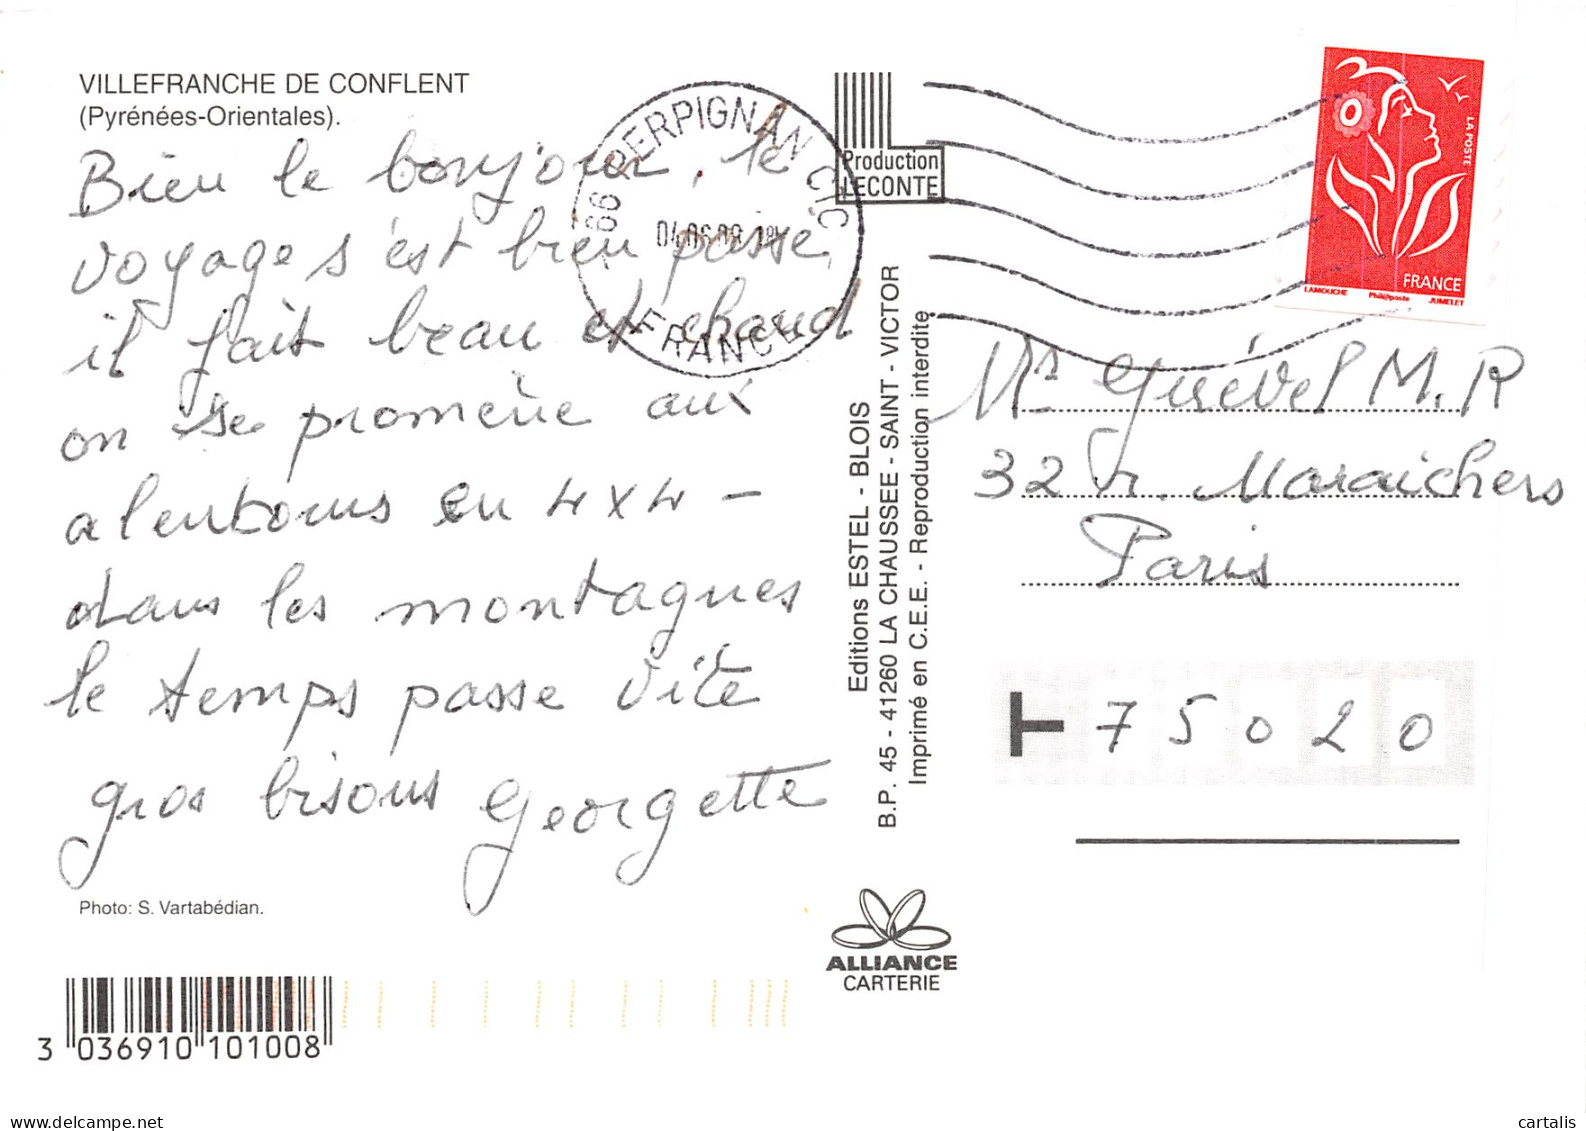 VILLEFRANCHE DE CONFLENT
(Pyrénées-Orientales).
Bien le bonjour, le
voyage s'est bien passé,
il fait beau et chaud
on se promène aux
alentours en 4x4 -
dans les montagnes
le temps passe vite
gros bisous Georgette
Photo: S. Vartabédian.
3 036910 101008
66 PERPIGNAN CTC
FRANCE
Production
LECONTE
Editions ESTEL - BLOIS
B.P. 45 - 41260 LA CHAUSSEE - SAINT - VICTOR
Imprimé en C.E.E. - Reproduction interdite
ALLIANCE
CARTERIE
LA POSTE
FRANCE
LAMOUCHE Phil@poste JUMELET
Mr Guével M.R
32 r. Maraichers
Paris
T 75020
delcampe.net
cartalis